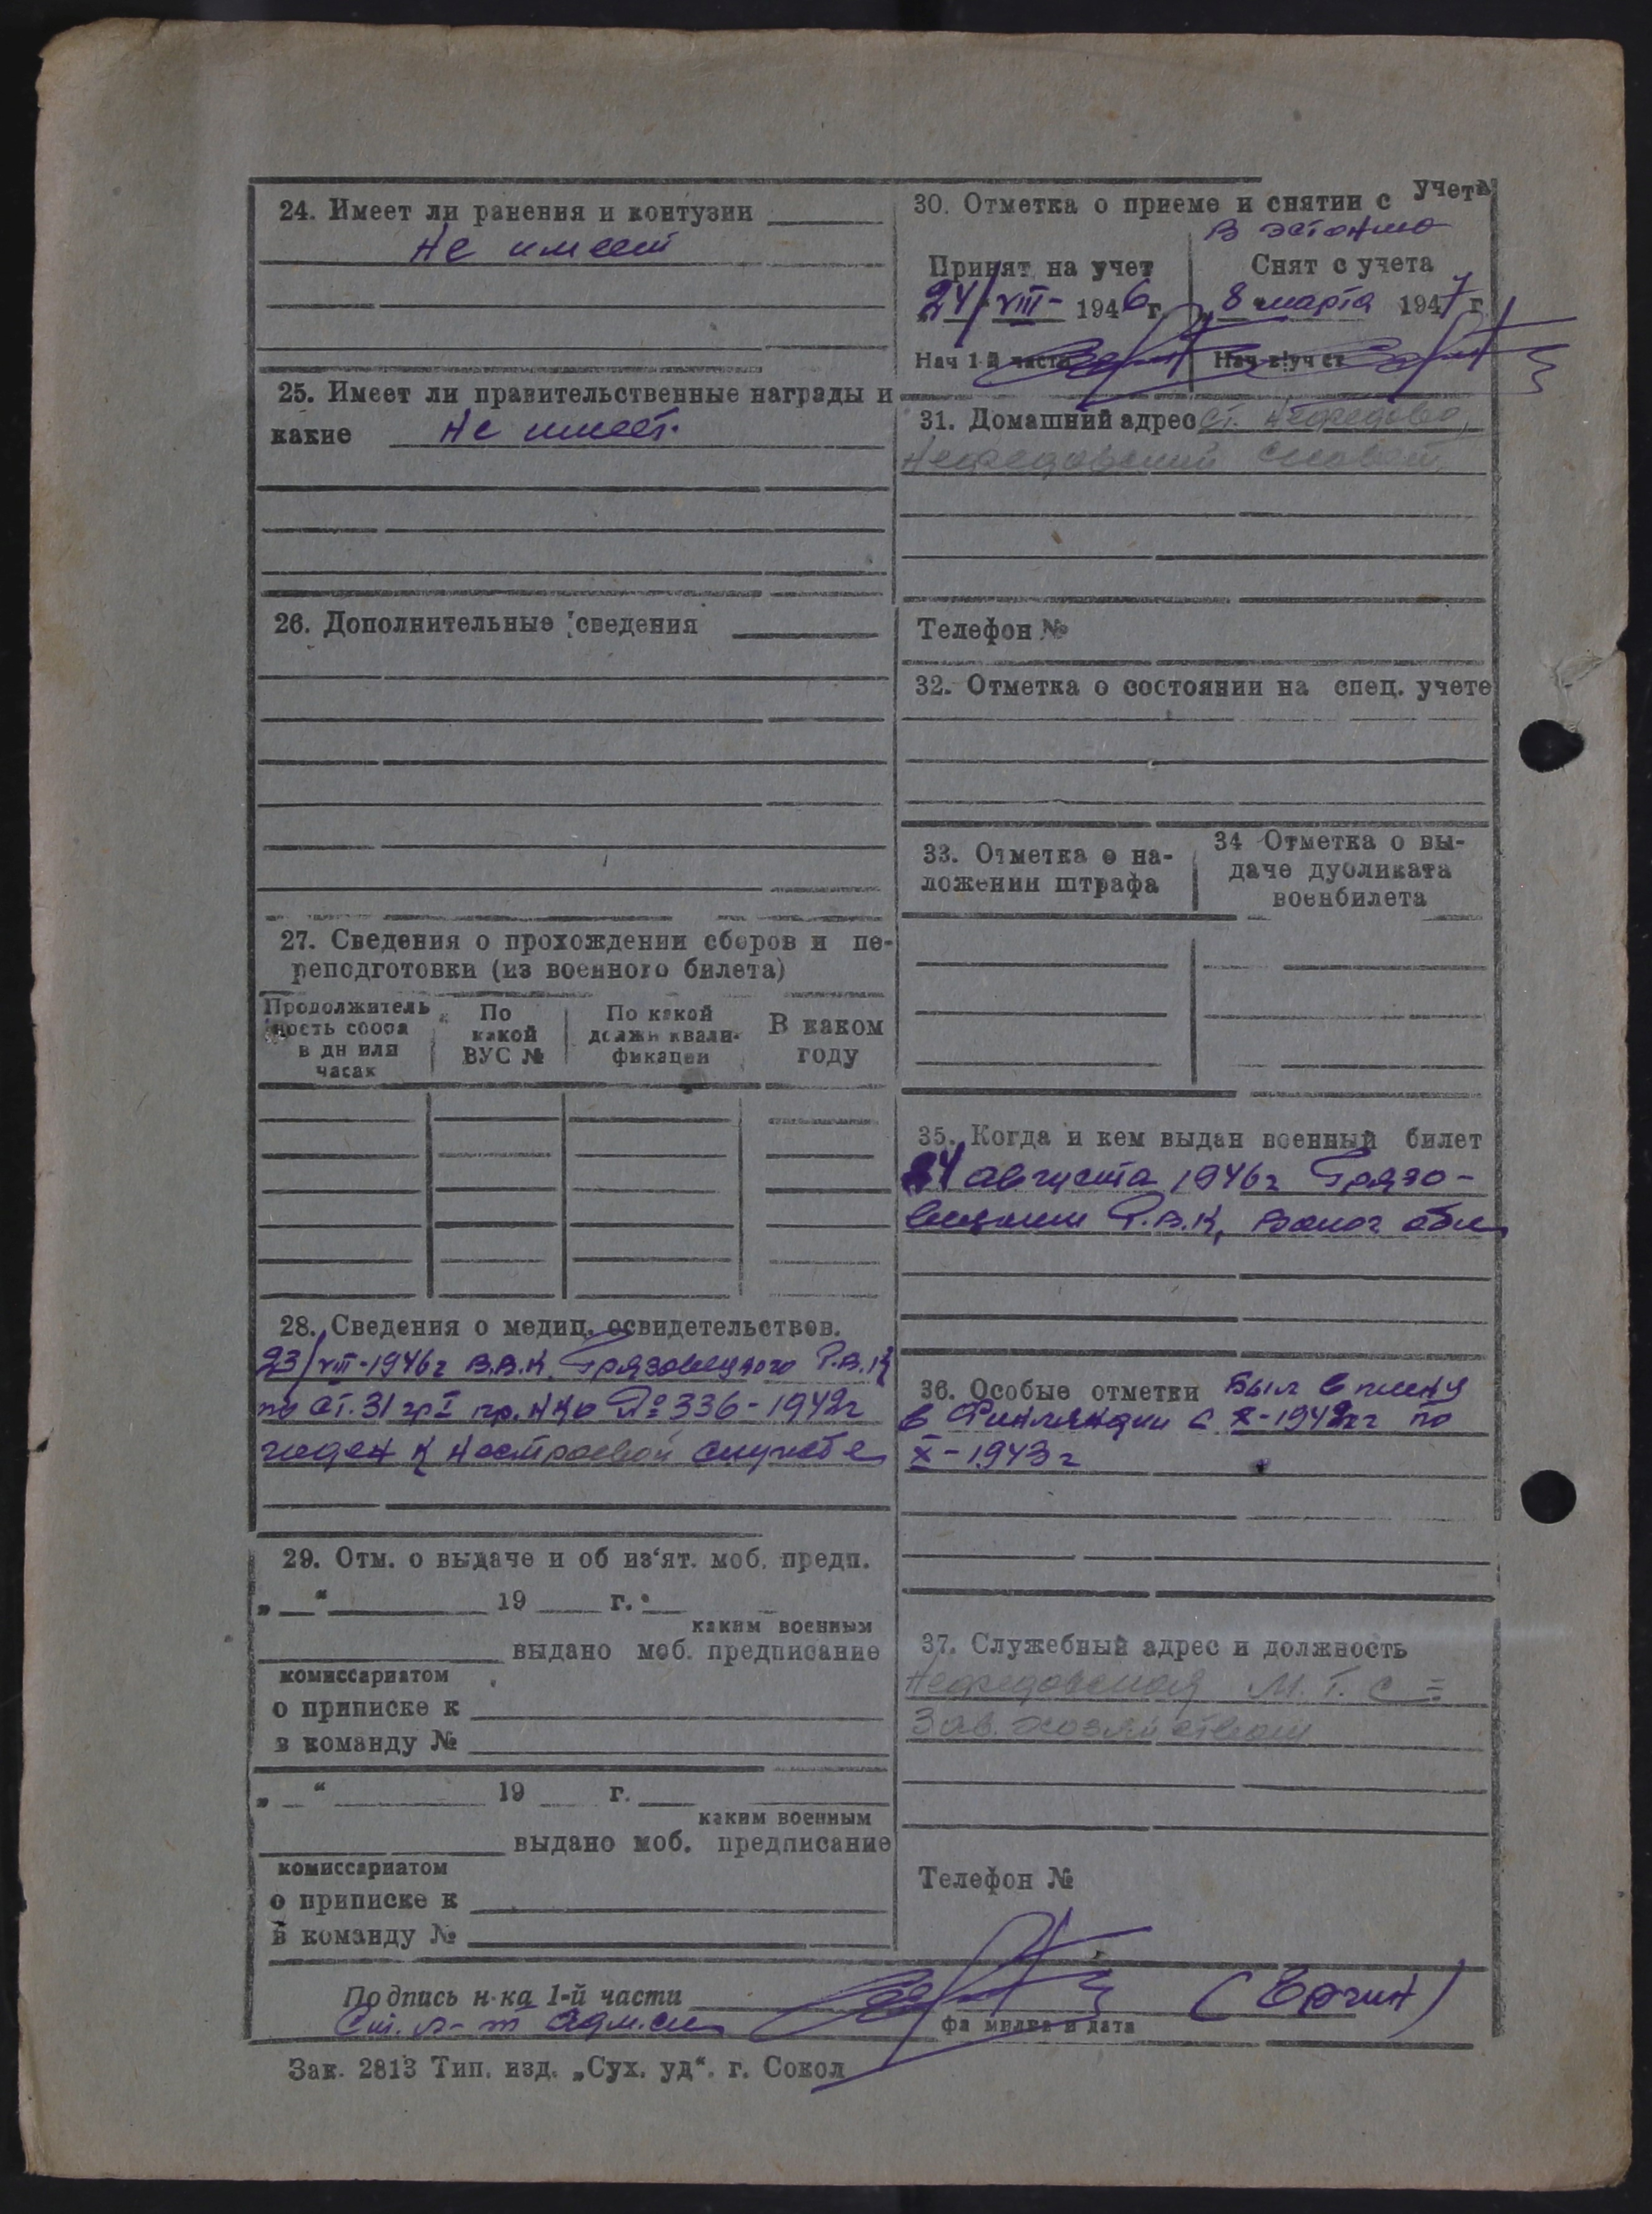 24. Имеет ли ранения и контузии
Не имеет
25. Имеет ли правительственные награды и
какие Не имеет.
26. Дополнительные сведения
27. Сведения о прохождении сборов и пе-
реподготовки (из военного билета)
Продолжитель
ность сбора
в дн или
часах
По
какой
ВУС №
По какой
должн квали-
фикации
В каком
году
28. Сведения о медиц. освидетельствов.
23/VIII-1946г В.В.К. Грязовецкого Р.В.К
по ст. 31 гр I пр. НКО № 336-1942г
годен к нестроевой службе
29. Отм. о выдаче и об из‘ят. моб. предп.
„ “ 19 г.
каким военным
выдано моб. предписание
комиссариатом
о приписке к
в команду №
„ “ 19 г.
каким военным
выдано моб. предписание
комиссариатом
о приписке к
в команду №
30. Отметка о приеме и снятии с учета
В Эстонию
Принят на учет
24/VIII- 1946 г.
Нач 1-й части
Снят с учета
„8 марта 1947 г.
31. Домашний адрес ст.
Телефон №
32. Отметка о состоянии на спец. учете
33. Отметка о на-
ложении штрафа
34 Отметка о вы-
даче дубликата
военбилета
35. Когда и кем выдан военный билет
24 августа 1946г Грязо-
вецким Р.В.К, Волог обл
36. Особые отметки Был в плену
в Финляндии с X-1942г по
X-1943г
37. Служебный адрес и должность
М.Т.С =
Зав. хозяйством
Телефон №
Подпись н-ка 1-й части
Ст. л-т адм.сл
(Ергин)
фамилия и дата
Зак. 2813 Тип. изд. „Сух. уд“. г. Сокол